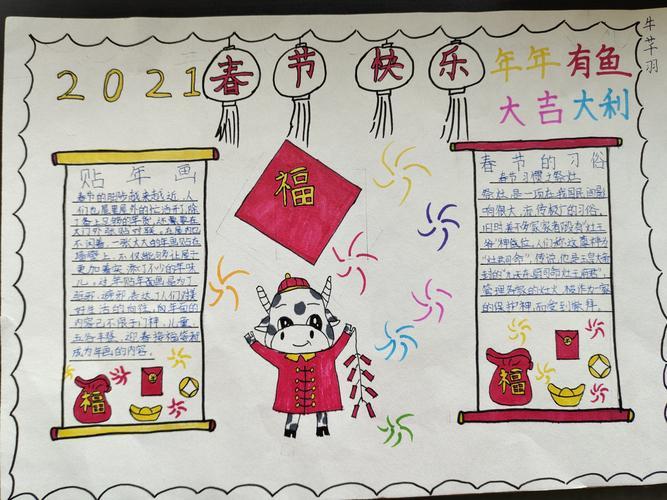 2021
春节快乐
年年有鱼
大吉大利
牛芊羽
福
贴年画
春节的脚步越来越近，人
们也屋里屋外的忙活开了除
了备上足够的年货，还要在
大门外张贴对联，在屋内也
不闲着，一张大大的年画贴在
墙壁上，不仅能够让屋子
更加喜庆，添了不少的年味
儿，对年贴年画是为了
表达了人们对美
好生活的向往，
内容已不限于门神，儿童、
五谷丰登、迎春接福等都
成为年画的内容。
福
春节的习俗
春节习惯之祭灶
祭灶，是一项在我国民间影
响很大、流传极广的习俗。
旧时，差不多家家灶间都设有"灶王
爷"神位。人们称这尊神为
"灶司命"，传说他是玉皇大帝
封的"九天东厨司命灶王府君"，
管理各家的灶火，被作为一家
的保护神而受到崇拜
福